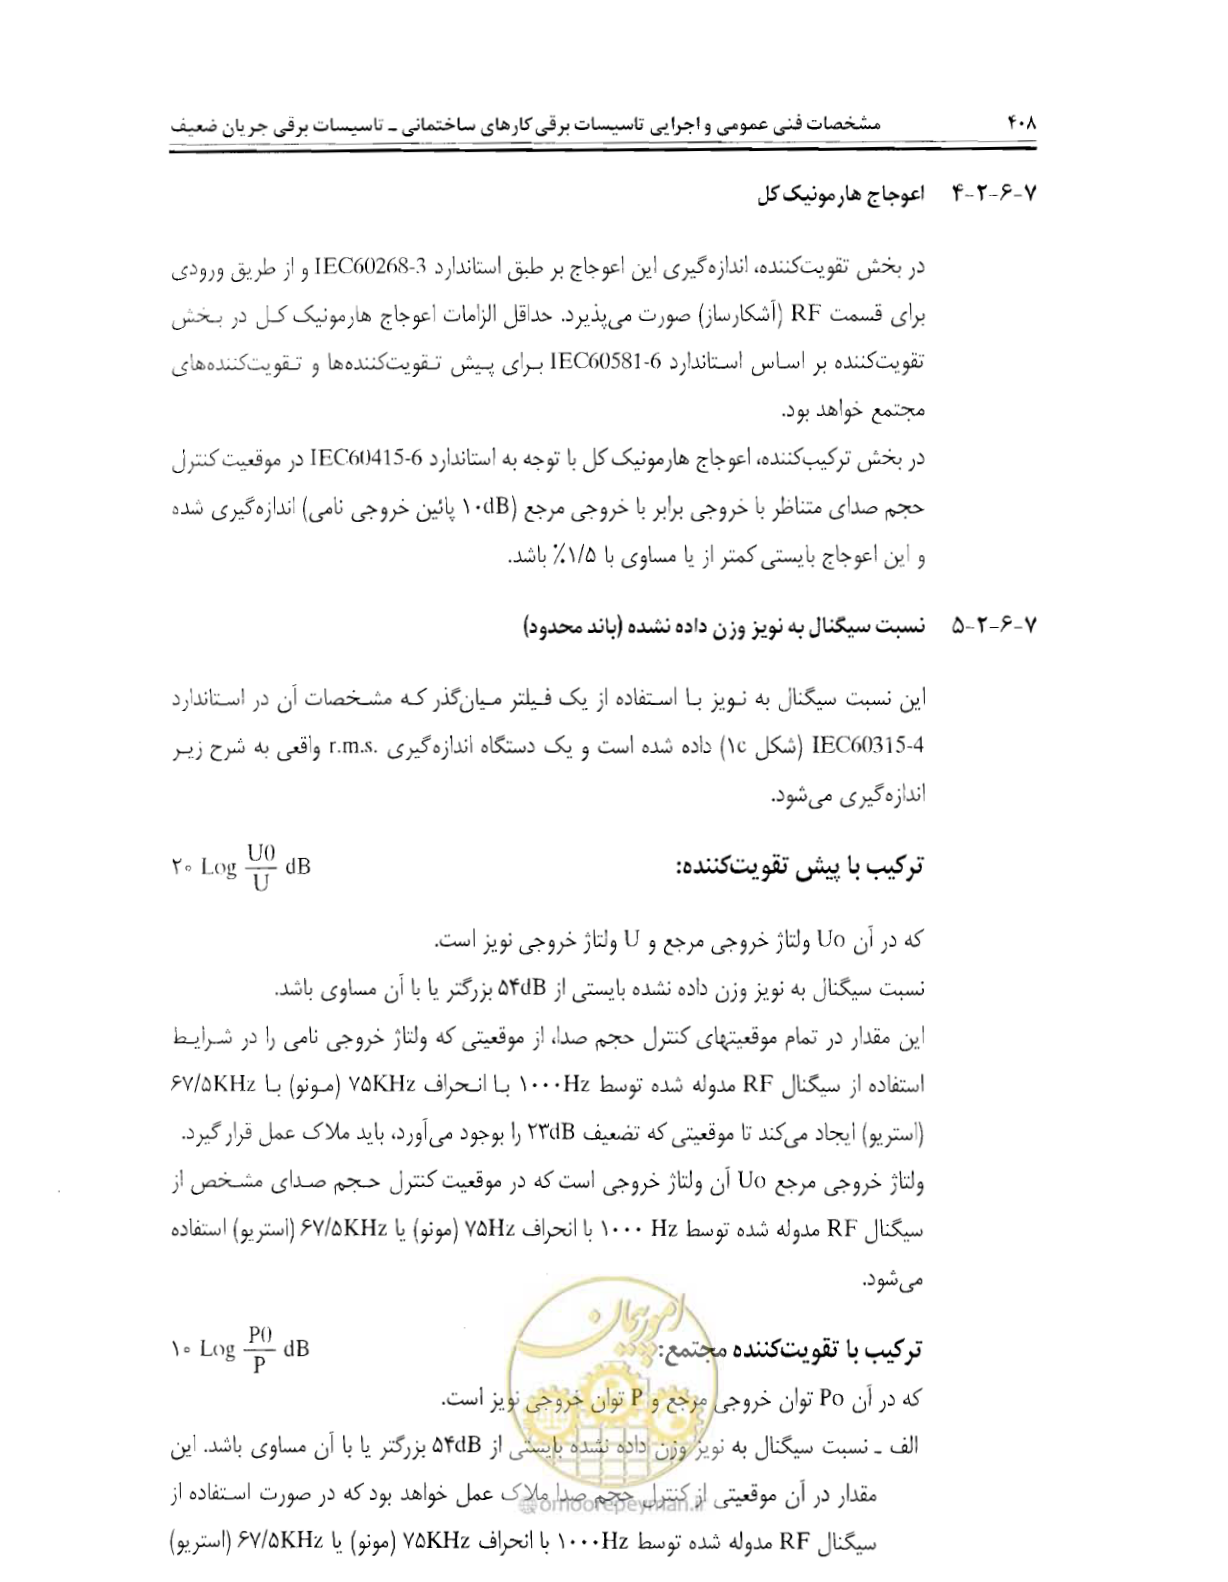 ۴۰۸ مشخصات فنی عمومی و اجرایی تاسیسات برقی کارهای ساختمانی ـ تاسیسات برقی جریان ضعیف
۷-۶-۲-۴ اعوجاج هارمونیک کل
در بخش تقویت‌کننده، اندازه‌گیری این اعوجاج بر طبق استاندارد IEC60268-3 و از طریق ورودی
برای قسمت RF (آشکارساز) صورت می‌پذیرد. حداقل الزامات اعوجاج هارمونیک کل در بخش
تقویت‌کننده بر اساس استاندارد IEC60581-6 برای پیش تقویت‌کننده‌ها و تقویت‌کننده‌های
مجتمع خواهد بود.
در بخش ترکیب‌کننده، اعوجاج هارمونیک کل با توجه به استاندارد IEC60415-6 در موقعیت کنترل
حجم صدای متناظر با خروجی برابر با خروجی مرجع (۱۰dB پائین خروجی نامی) اندازه‌گیری شده
و این اعوجاج بایستی کمتر از یا مساوی با ۱/۵٪ باشد.
۷-۶-۲-۵ نسبت سیگنال به نویز وزن داده نشده (باند محدود)
این نسبت سیگنال به نویز با استفاده از یک فیلتر میان‌گذر که مشخصات آن در استاندارد
IEC60315-4 (شکل ۱c) داده شده است و یک دستگاه اندازه‌گیری r.m.s. واقعی به شرح زیر
اندازه‌گیری می‌شود.
ترکیب با پیش تقویت‌کننده: ۲۰ Log U0/U dB
که در آن Uo ولتاژ خروجی مرجع و U ولتاژ خروجی نویز است.
نسبت سیگنال به نویز وزن داده نشده بایستی از ۵۴dB بزرگتر یا با آن مساوی باشد.
این مقدار در تمام موقعیتهای کنترل حجم صدا، از موقعیتی که ولتاژ خروجی نامی را در شرایط
استفاده از سیگنال RF مدوله شده توسط ۱۰۰۰Hz با انحراف ۷۵KHz (مونو) با ۶۷/۵KHz
(استریو) ایجاد می‌کند تا موقعیتی که تضعیف ۲۳dB را بوجود می‌آورد، باید ملاک عمل قرار گیرد.
ولتاژ خروجی مرجع Uo آن ولتاژ خروجی است که در موقعیت کنترل حجم صدای مشخص از
سیگنال RF مدوله شده توسط ۱۰۰۰ Hz با انحراف ۷۵Hz (مونو) یا ۶۷/۵KHz (استریو) استفاده
می‌شود.
ترکیب با تقویت‌کننده مجتمع: ۱۰ Log P0/P dB
که در آن Po توان خروجی مرجع و P توان خروجی نویز است.
الف ـ نسبت سیگنال به نویز وزن داده نشده بایستی از ۵۴dB بزرگتر یا با آن مساوی باشد. این
مقدار در آن موقعیتی از کنترل حجم صدا ملاک عمل خواهد بود که در صورت استفاده از
سیگنال RF مدوله شده توسط ۱۰۰۰Hz با انحراف ۷۵KHz (مونو) یا ۶۷/۵KHz (استریو)
امور پیمان
@omoorepeyman.ir